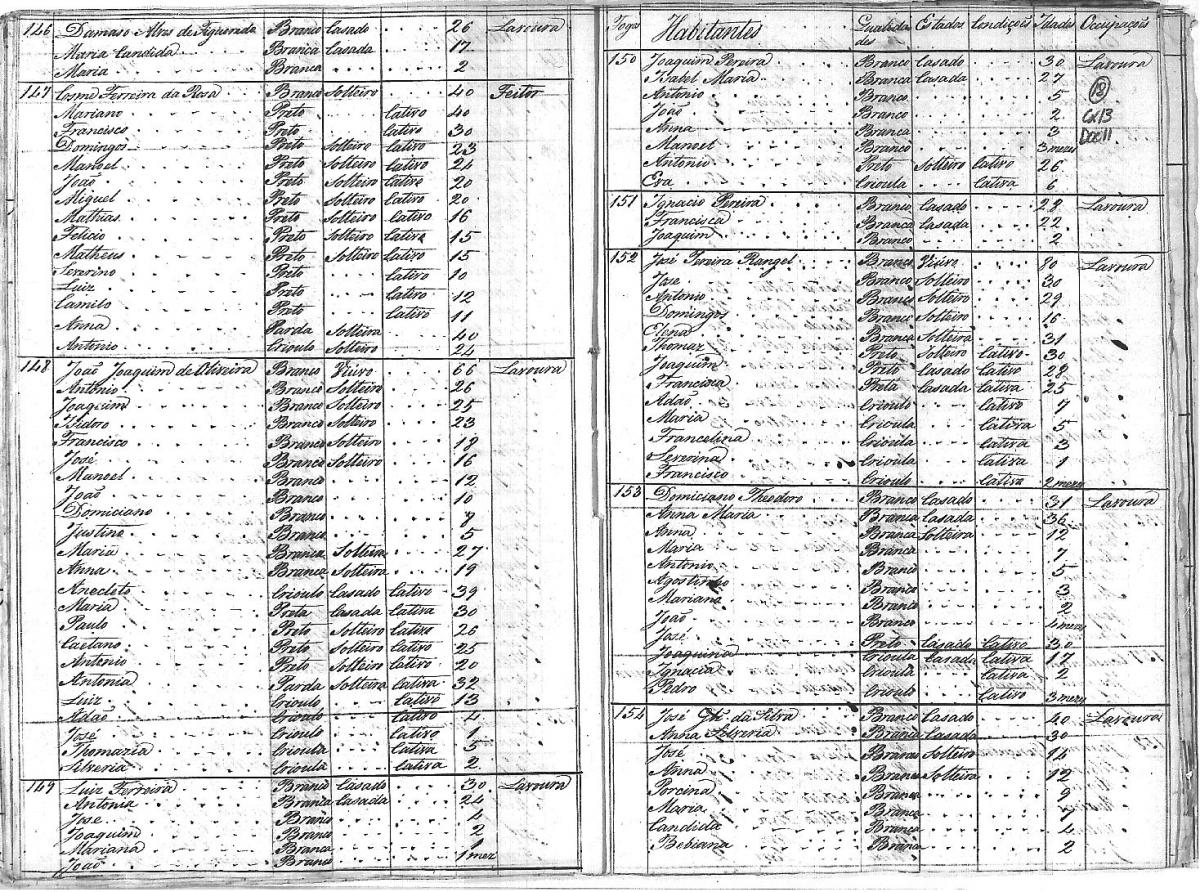 146 Damaso Alves de Figueredo Branco Casado 26 Lavoura
Maria Candida Branca Casada 17
Maria Branca 2
147 Cosme Ferreira da Rosa Branco Solteiro 40 Feitor
Mariano Preto Cativo 40
Francisco Preto Cativo 30
Domingos Preto Solteiro Cativo 23
Manoel Preto Solteiro Cativo 24
João Preto Solteiro Cativo 20
Miguel Preto Solteiro Cativo 20
Mathias Preto Solteiro Cativo 16
Felicio Preto Solteiro Cativo 15
Matheus Preto Solteiro Cativo 15
Severino Preto Cativo 10
Luiz Preto Cativo 12
Camilo Preto Cativo 11
Anna Parda Solteira 40
Antonio Crioulo Solteiro 24
148 João Joaquim de Oliveira Branco Viuvo 66 Lavoura
Antonio Branco Solteiro 26
Joaquim Branco Solteiro 25
Isidoro Branco Solteiro 23
Francisco Branco Solteiro 18
José Branco Solteiro 16
Manoel Branco 12
João Branco 10
Domiciano Branco
Justino Branco 5
Maria Branca Solteira 27
Anna Branca Solteira 19
Anecleto Crioulo Casado Cativo 39
Maria Preta Casada Cativa 30
Paulo Preto Solteiro Cativo 26
Caetano Preto Solteiro Cativo 25
Antonio Preto Solteiro Cativo 20
Antonia Parda Solteira Cativa 32
Luiz Crioulo Cativo 13
Adão Crioulo Cativo 4
José Crioulo Cativo 1
Thomazia Crioula Cativa 5
Silveria Crioula Cativa 2
149 Luiz Ferreira Branco Casado 30 Lavoura
Antonia Branca Casada 24
Jose Branco 4
Joaquim Branco 2
Mariana Branca 1
João Branco 1 mez
Fogos Habitantes Qualidades Estados Condiçoes Idades Occupaçoes
150 Joaquim Pereira Branco Casado 30 Lavoura
Izabel Maria Branca Casada 27
Antonio Branco 5
João Branco 2 CX13
Anna Branca 3 Doc11
Manoel Branco 3 mezes
Antonio Preto Solteiro Cativo 26
Eva Crioula Cativa 6
151 Ignacio Pereira Branco Casado 28 Lavoura
Francisca Branca Casada 22
Joaquim Branco 2
152 José Pereira Rangel Branco Viuvo 80 Lavoura
Jose Branco Solteiro 30
Antonio Branco Solteiro 29
Domingos Branco Solteiro 16
Elena Branca Solteira 31
Thomaz Preto Solteiro Cativo 30
Joaquim Preto Casado Cativo 28
Francisca Preta Casada Cativa 25
Adão Crioulo Cativo 7
Maria Crioula Cativa 5
Francelina Crioula Cativa 3
Severina Crioula Cativa 1
Francisco Crioulo Cativo 2 mezes
153 Domiciano Theodoro Branco Casado 31 Lavoura
Anna Maria Branca Casada 36
Anna Branca Solteira 12
Maria Branca 7
Antonio Branco 5
Agostinho Branco 3
Mariano Branco 2
João Branco 4 mezes
José Preto Casado Cativo 30
Joaquina Crioula Casada Cativa 17
Ignacia Crioula Cativa 2
Pedro Crioulo Cativo 3 mezes
154 José da Silva Branco Casado 40 Lavoura
Anna Silveria Branca Casada 30
José Branco Solteiro
Anna Branca Solteira 12
Porcina Branca 9
Maria Branca 7
Candida Branca 4
Bebiana Branca 2